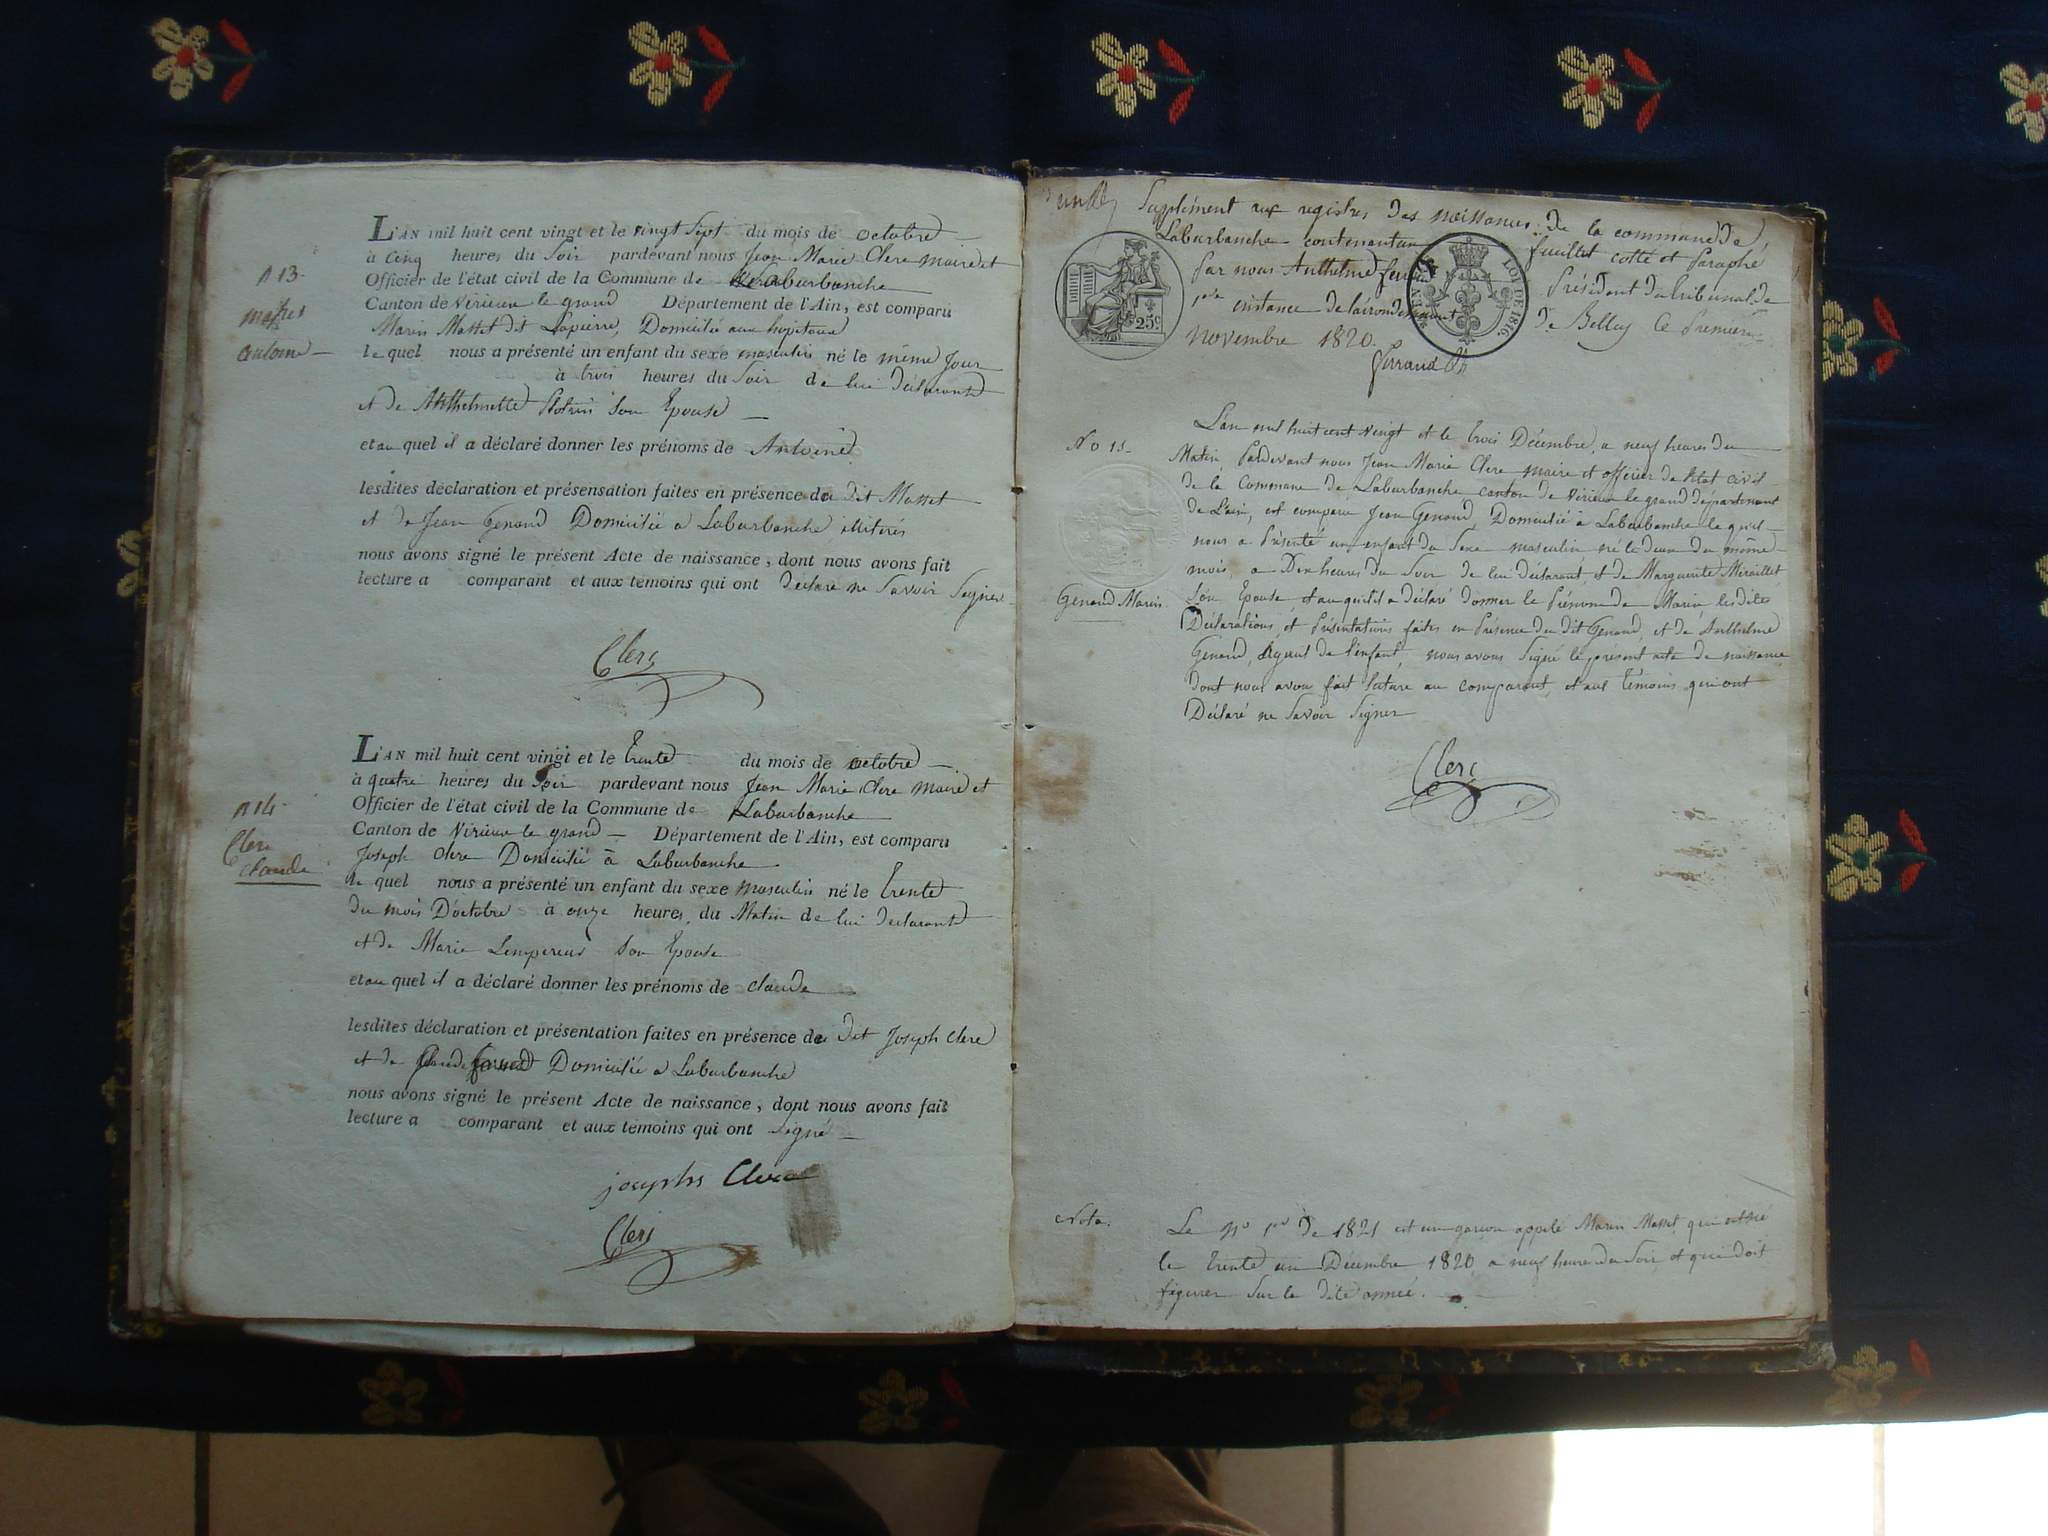 L'AN mil huit cent vingt et le vingt Sept du mois de octobre
à Cinq heures du Soir pardevant nous Jean Marie Clerc maire et
Officier de l'état civil de la Commune de Laburbanche
Canton de Virieu le grand Département de l'Ain, est comparu
Marin Masset dit Lapierre, Domicilié aux hopitaux
le quel nous a présenté un enfant du sexe masculin né le même Jour
à trois heures du Soir de lui déclarant
et de Anthelmette son Epouse
et au quel il a déclaré donner les prénoms de Antoine
lesdites déclaration et présensation faites en présence du dit Masset
et de Jean Genoud Domicilié a Laburbanche illitérés
nous avons signé le présent Acte de naissance, dont nous avons fait
lecture a comparant et aux témoins qui ont déclaré ne Savoir Signer
Clerc
n 13
antoine
L'AN mil huit cent vingt et le trente du mois de octobre
à quatre heures du Soir pardevant nous Jean Marie Clerc maire et
Officier de l'état civil de la Commune de Laburbanche
Canton de Virieu le grand Département de l'Ain, est comparu
Joseph Clerc Domicilié à Laburbanche
le quel nous a présenté un enfant du sexe masculin né le trente
du mois D'octobre à onze heures du Matin de lui déclarant
et de Marie Lempereur Son Epouse
et au quel il a déclaré donner les prénoms de claude
lesdites déclaration et présentation faites en présence du dit Joseph Clerc
et de Domicilié a Laburbanche
nous avons signé le présent Acte de naissance, dont nous avons fait
lecture a comparant et aux témoins qui ont signé
josephs Clerc
Clerc
n 14
Clerc
claude
Suplément aux registres des naissances de la commune de
Laburbanche contenant un feuillet cotté et Paraphé
par nous Anthelme Président du tribunal de
instance de l'airondissement de Belley Ce Premier
novembre 1820.
25c
LOI DE 1816.
No 15
Genoud Marin
L'an mil huit cent vingt et le trois Décembre, a neuf heures du
Matin, Pardevant nous Jean Marie Clerc maire et officier de l'état civil
de la Commune de Laburbanche canton de Virieu le grand département
de L'ain, est comparu Jean Genoud, Domicilié à Laburbanche le quel
nous a Présenté un enfant du Sexe masculin né le deux du même
mois, a Dix heures du Soir de lui déclarant, et de Marguerite Miraillet
Son Epouse, et au quel il a déclaré donner le Prénom de Marin, les dites
Déclarations, et Présentations faites en Présence du dit Genoud, et de Anthelme
Genoud, Ayeul de l'enfant, nous avons Signé le présent acte de naissance
dont nous avon fait lecture au comparant, et aux témoins qui ont
Déclaré ne Savoir Signer
Clerc
Nota.
Le no 1er de 1821 est un garçon appelé Marin Masset, qui est né
le trente un Décembre 1820 a neuf heures du Soir, et qui doit
figurer Sur la dite année.